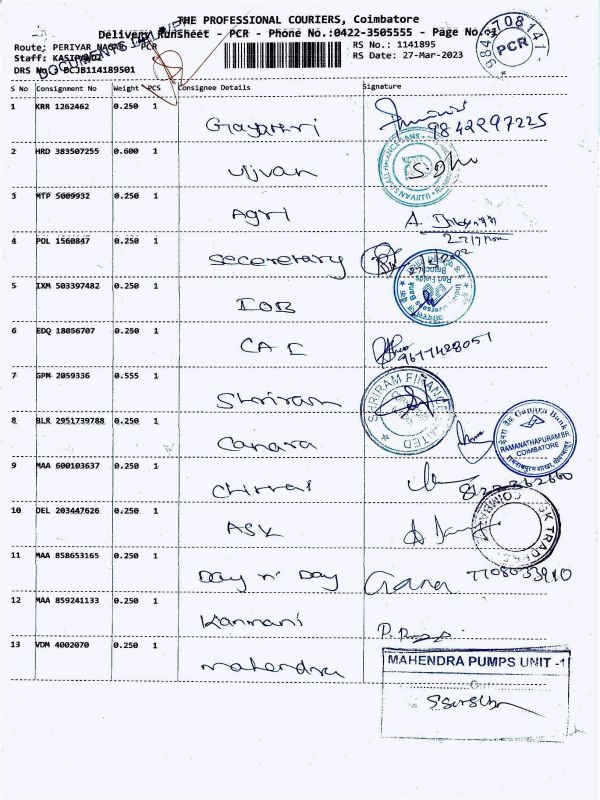 THE PROFESSIONAL COURIERS, Coimbatore
Delivery Runsheet - PCR - Phone No.:0422-3505555 - Page No.
Route: PERIYAR NAGAR - PCR RS No.: 1141895
Staff: RS Date: 27-Mar-2023
DRS No DCJB114189501
9842708141 PCR
S No Consignment No Weight PCS Consignee Details Signature
1 KRR 1262462 0.250 1 Gayathri 9842297225
2 HRD 383507255 0.600 1 Ujjvan
3 MTP 5009932 0.250 1 Agri
4 POL 1560847 0.250 1 Secoretary
5 IXM 503397482 0.250 1 IOB
6 EDQ 18056707 0.250 1 CAE 9677428051
7 GPM 2059336 0.555 1 Shriram
SHRIRAM FINANCE LIMITED
8 BLR 2951739788 0.250 1 Canara
Canara Bank
RAMANATHAPURAM BR.
COIMBATORE
9 MAA 600103637 0.250 1
10 DEL 203447626 0.250 1 ASK
11 MAA 858653165 0.250 1 Day n' Day Gana 7708033910
12 MAA 859241133 0.250 1 Kanmani
13 VDM 4002070 0.250 1 Mahendra
MAHENDRA PUMPS UNIT -1